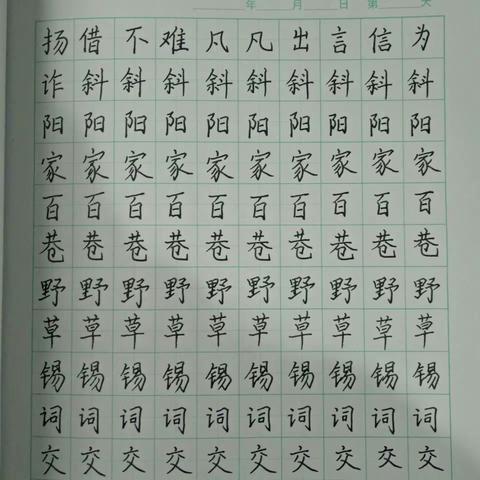 年 月 日 第 天
扬借不难凡凡出言信为
诈斜斜斜斜斜斜斜斜斜
阳阳阳阳阳阳阳阳阳阳
家家家家家家家家家家
百百百百百百百百百百
巷巷巷巷巷巷巷巷巷巷
野野野野野野野野野野
草草草草草草草草草草
锡锡锡锡锡锡锡锡锡锡
词词词词词词词词词词
交交交交交交交交交交